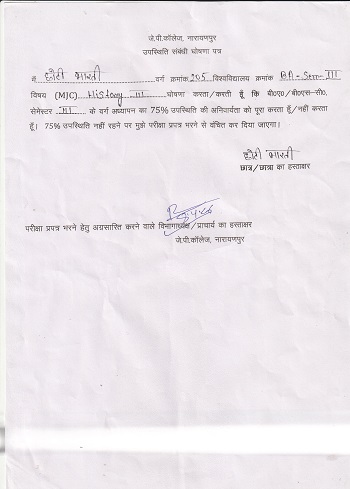 जे.पी.कॉलेज, नारायणपुर
उपस्थिति संबंधी घोषणा पत्र
मैं छोटी भारती वर्ग क्रमांक 205 विश्वविद्यालय क्रमांक BA-Sem-III
विषय (MJC) History III घोषणा करता/करती हूँ कि बी०ए०/बी०एस–सी०,
सेमेस्टर III के वर्ग अध्यापन का 75% उपस्थिति की अनिवार्यता को पूरा करता हूँ/नहीं करता
हूँ। 75% उपस्थिति नहीं रहने पर मुझे परीक्षा प्रपत्र भरने से वंचित कर दिया जाएगा।
छोटी भारती
छात्र/छात्रा का हस्ताक्षर
परीक्षा प्रपत्र भरने हेतु अग्रसारित करने वाले विभागाध्यक्ष/प्राचार्य का हस्ताक्षर
जे.पी.कॉलेज, नारायणपुर